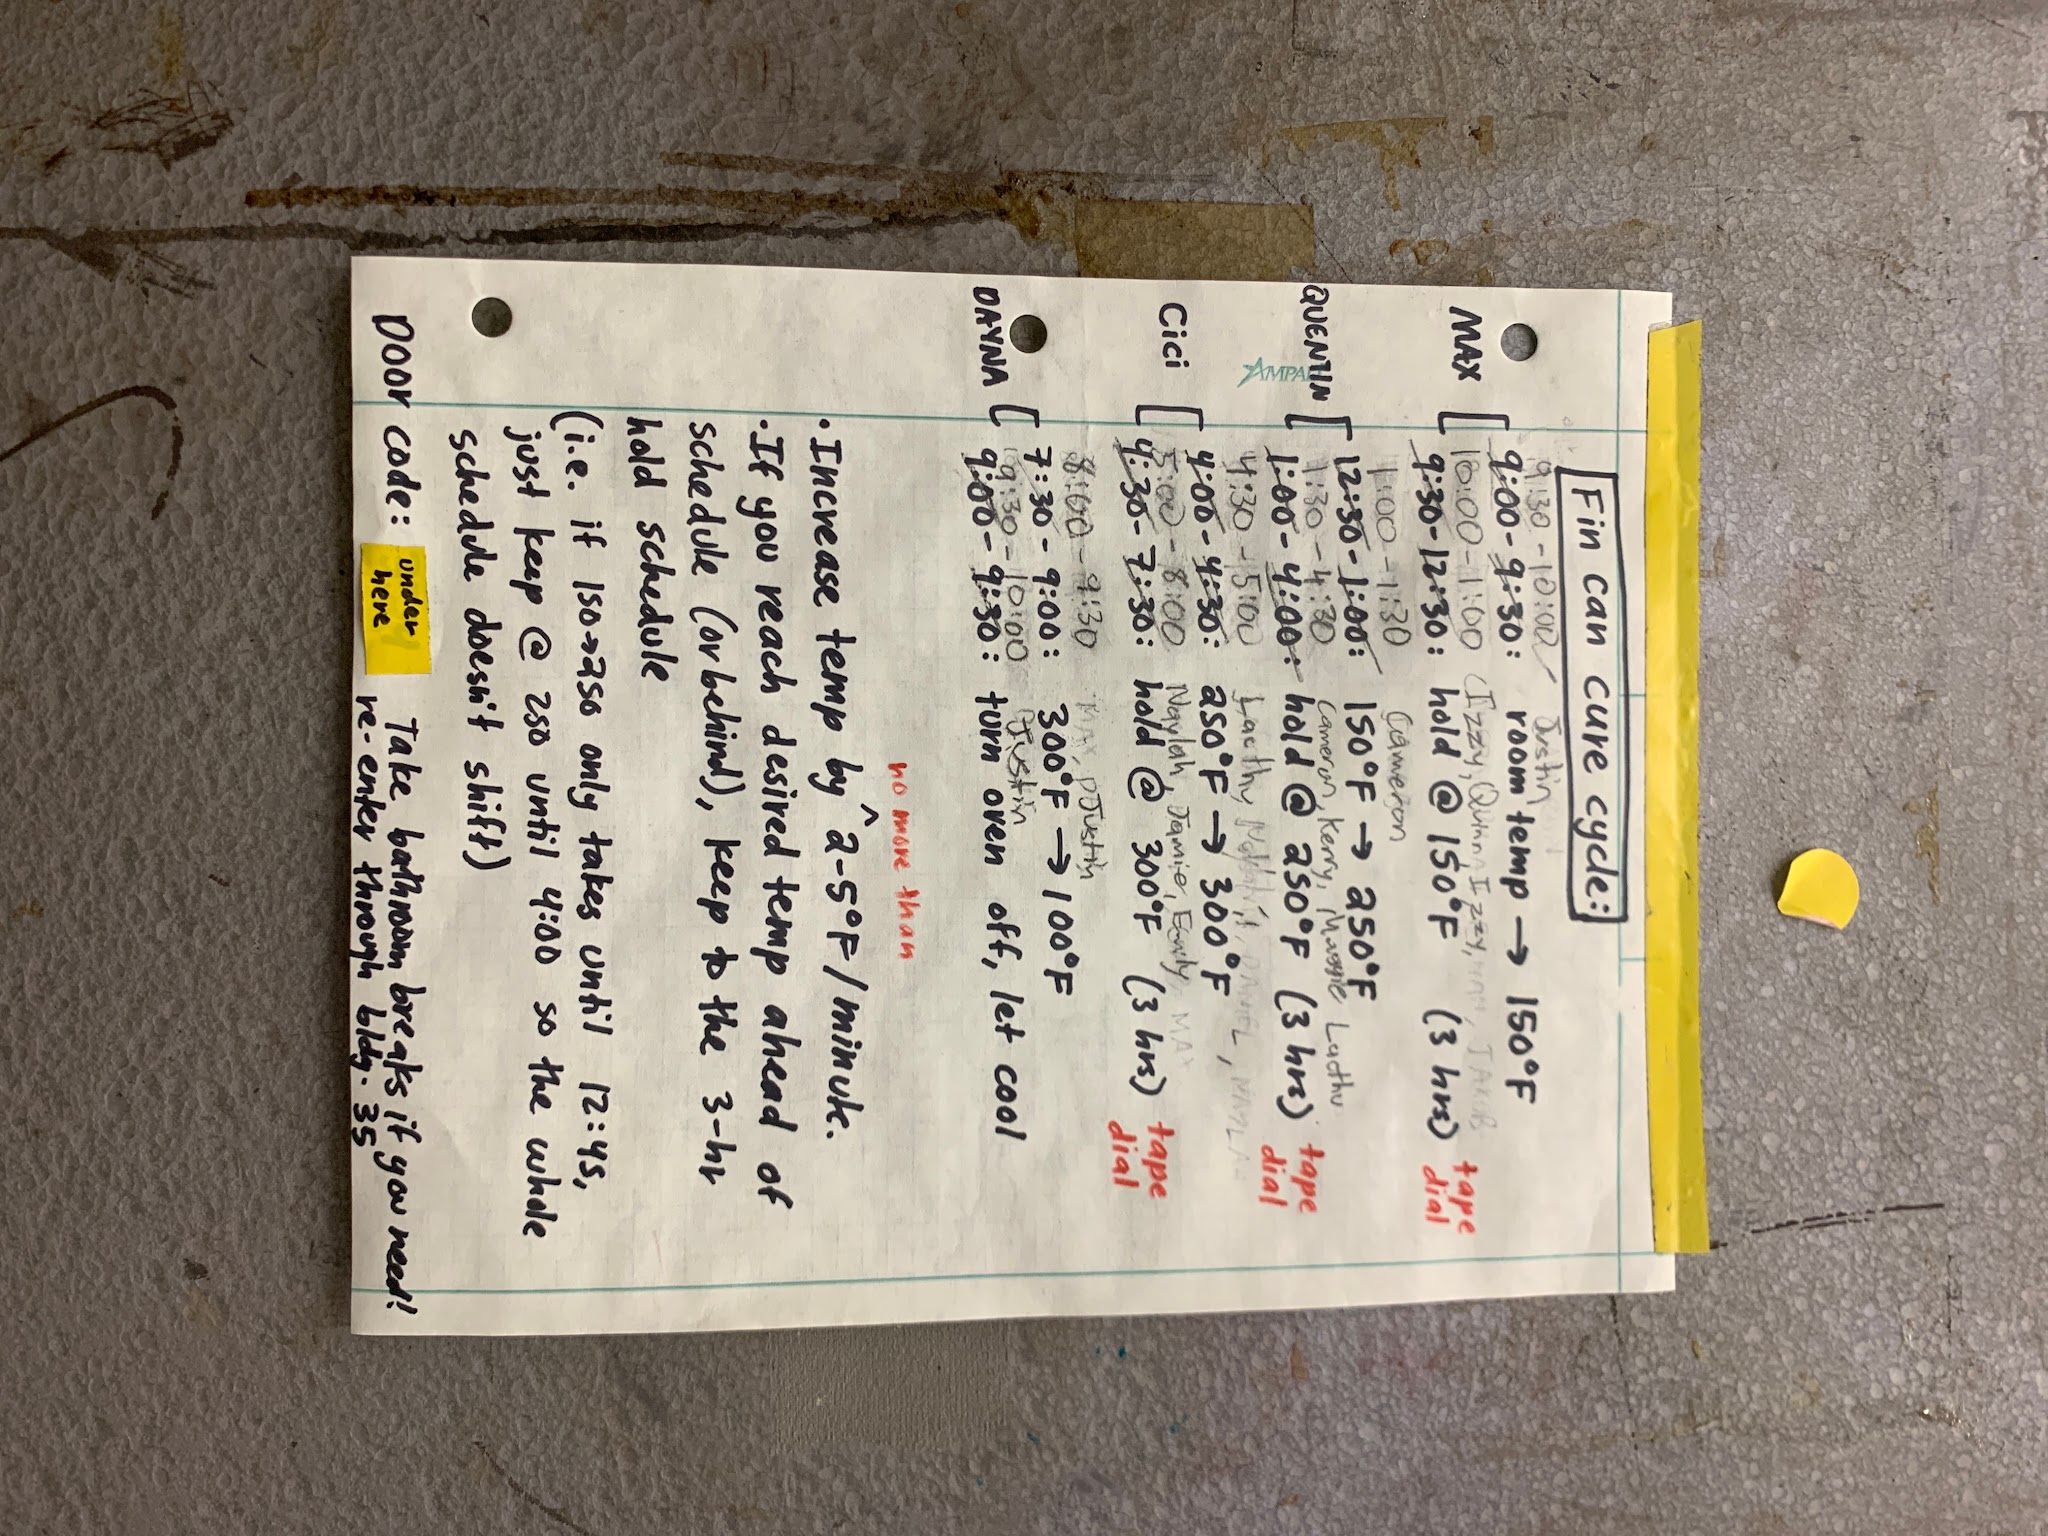 Fin can cure cycle:
9:30 - 10:00 Justin
MAX [ 9:00 - 9:30: room temp → 150°F
10:00 - 1:00 Izzy, Quinn Izzy, JAKOB
9:30 - 12:30: hold @ 150°F (3 hrs) tape dial
1:00 - 1:30 Cameron
QUENTIN [ 12:30 - 1:00: 150°F → 250°F
1:30 - 4:30 Cameron, Kerry, Maggie
1:00 - 4:00: hold @ 250°F (3 hrs) tape dial
AMPAD
4:30 - 5:00
Cici [ 4:00 - 4:30: 250°F → 300°F
5:00 - 8:00 Naylah, Jamie, Emily, MAX
4:30 - 7:30: hold @ 300°F (3 hrs) tape dial
8:00 - 9:30 MAX, Justin
DAYNA [ 7:30 - 9:00: 300°F → 100°F
9:30 - 10:00 Justin
9:00 - 9:30: turn oven off, let cool
no more than
• Increase temp by ^ 2-5°F/minute.
• If you reach desired temp ahead of
schedule (or behind), keep to the 3-hr
hold schedule
(i.e. if 150→250 only takes until 12:45,
just keep @ 250 until 4:00 so the whole
schedule doesn't shift)
Door code: under here Take bathroom breaks if you need!
re-enter through bldg. 35